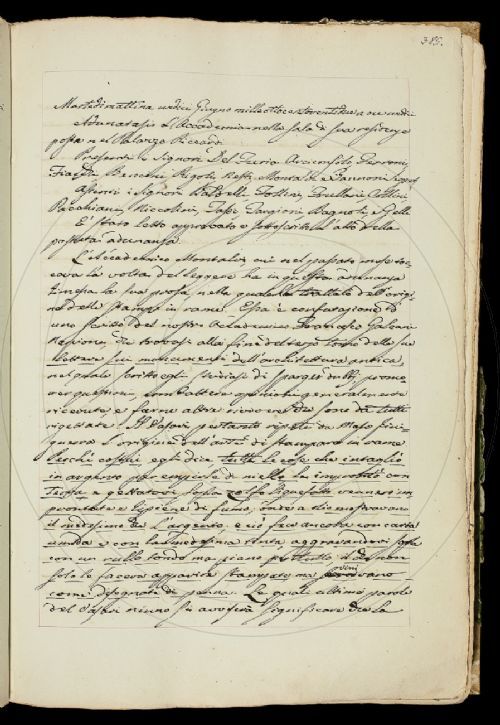 385.
Martedi mattina undici Giugno milleottocentoventidue a ore undici
Adunatasi l'Accademia nella sala di sua residenza
posta nel Palazzo Riccardi
Presenti i Signori Del Furia
Fiacchi Rigoli Montalvi e Zannoni Segr.
Assenti i Signori Follini, Collini
Niccolini, Targioni, Bagnoli, e
È stato letto approvato e sottoscritto l'atto della
passata adunanza.
L'Accademico Montalvi, cui nel passato mese toc-
cava la volta del leggere ha in questa adunanza
la sua prosa, nella quale ha trattato dell'origi-
ne delle stampe in rame. Essa è confutazione d
uno scritto del nostro Accademico Francesco
che trovasi alla fine del terzo tomo delle sue
Lettere sui monumenti dell'architettura antica,
nel quale scritto egli di sparger dubbi, promo-
ver questioni, combattere opinioni generalmente
ricevute, e farne altre rivivere che sono da tutti
rigettate. Il Vasari pertanto ripete da Maso Fini-
guerra l'origine dell'arte di stampare in rame
Perchè costui egli dice tutte le cose che intagliò
in argento per empierle di niello le improntò con
terra e gettatovi sopra solfo liquefatto vennero im-
prontate e ripiene di fumo, onde a olio mostravano
il medesimo che l'argento, e ciò fece ancora con carta
umida e con la medesima tinta aggravandovi sopra
con un rullo tondo ma piano per tutto il che non
solo le faceva apparire stampate ma venivano
come disegnate di penna. Le quali ultime parole
del Vasari niuno si avviserà significare che la